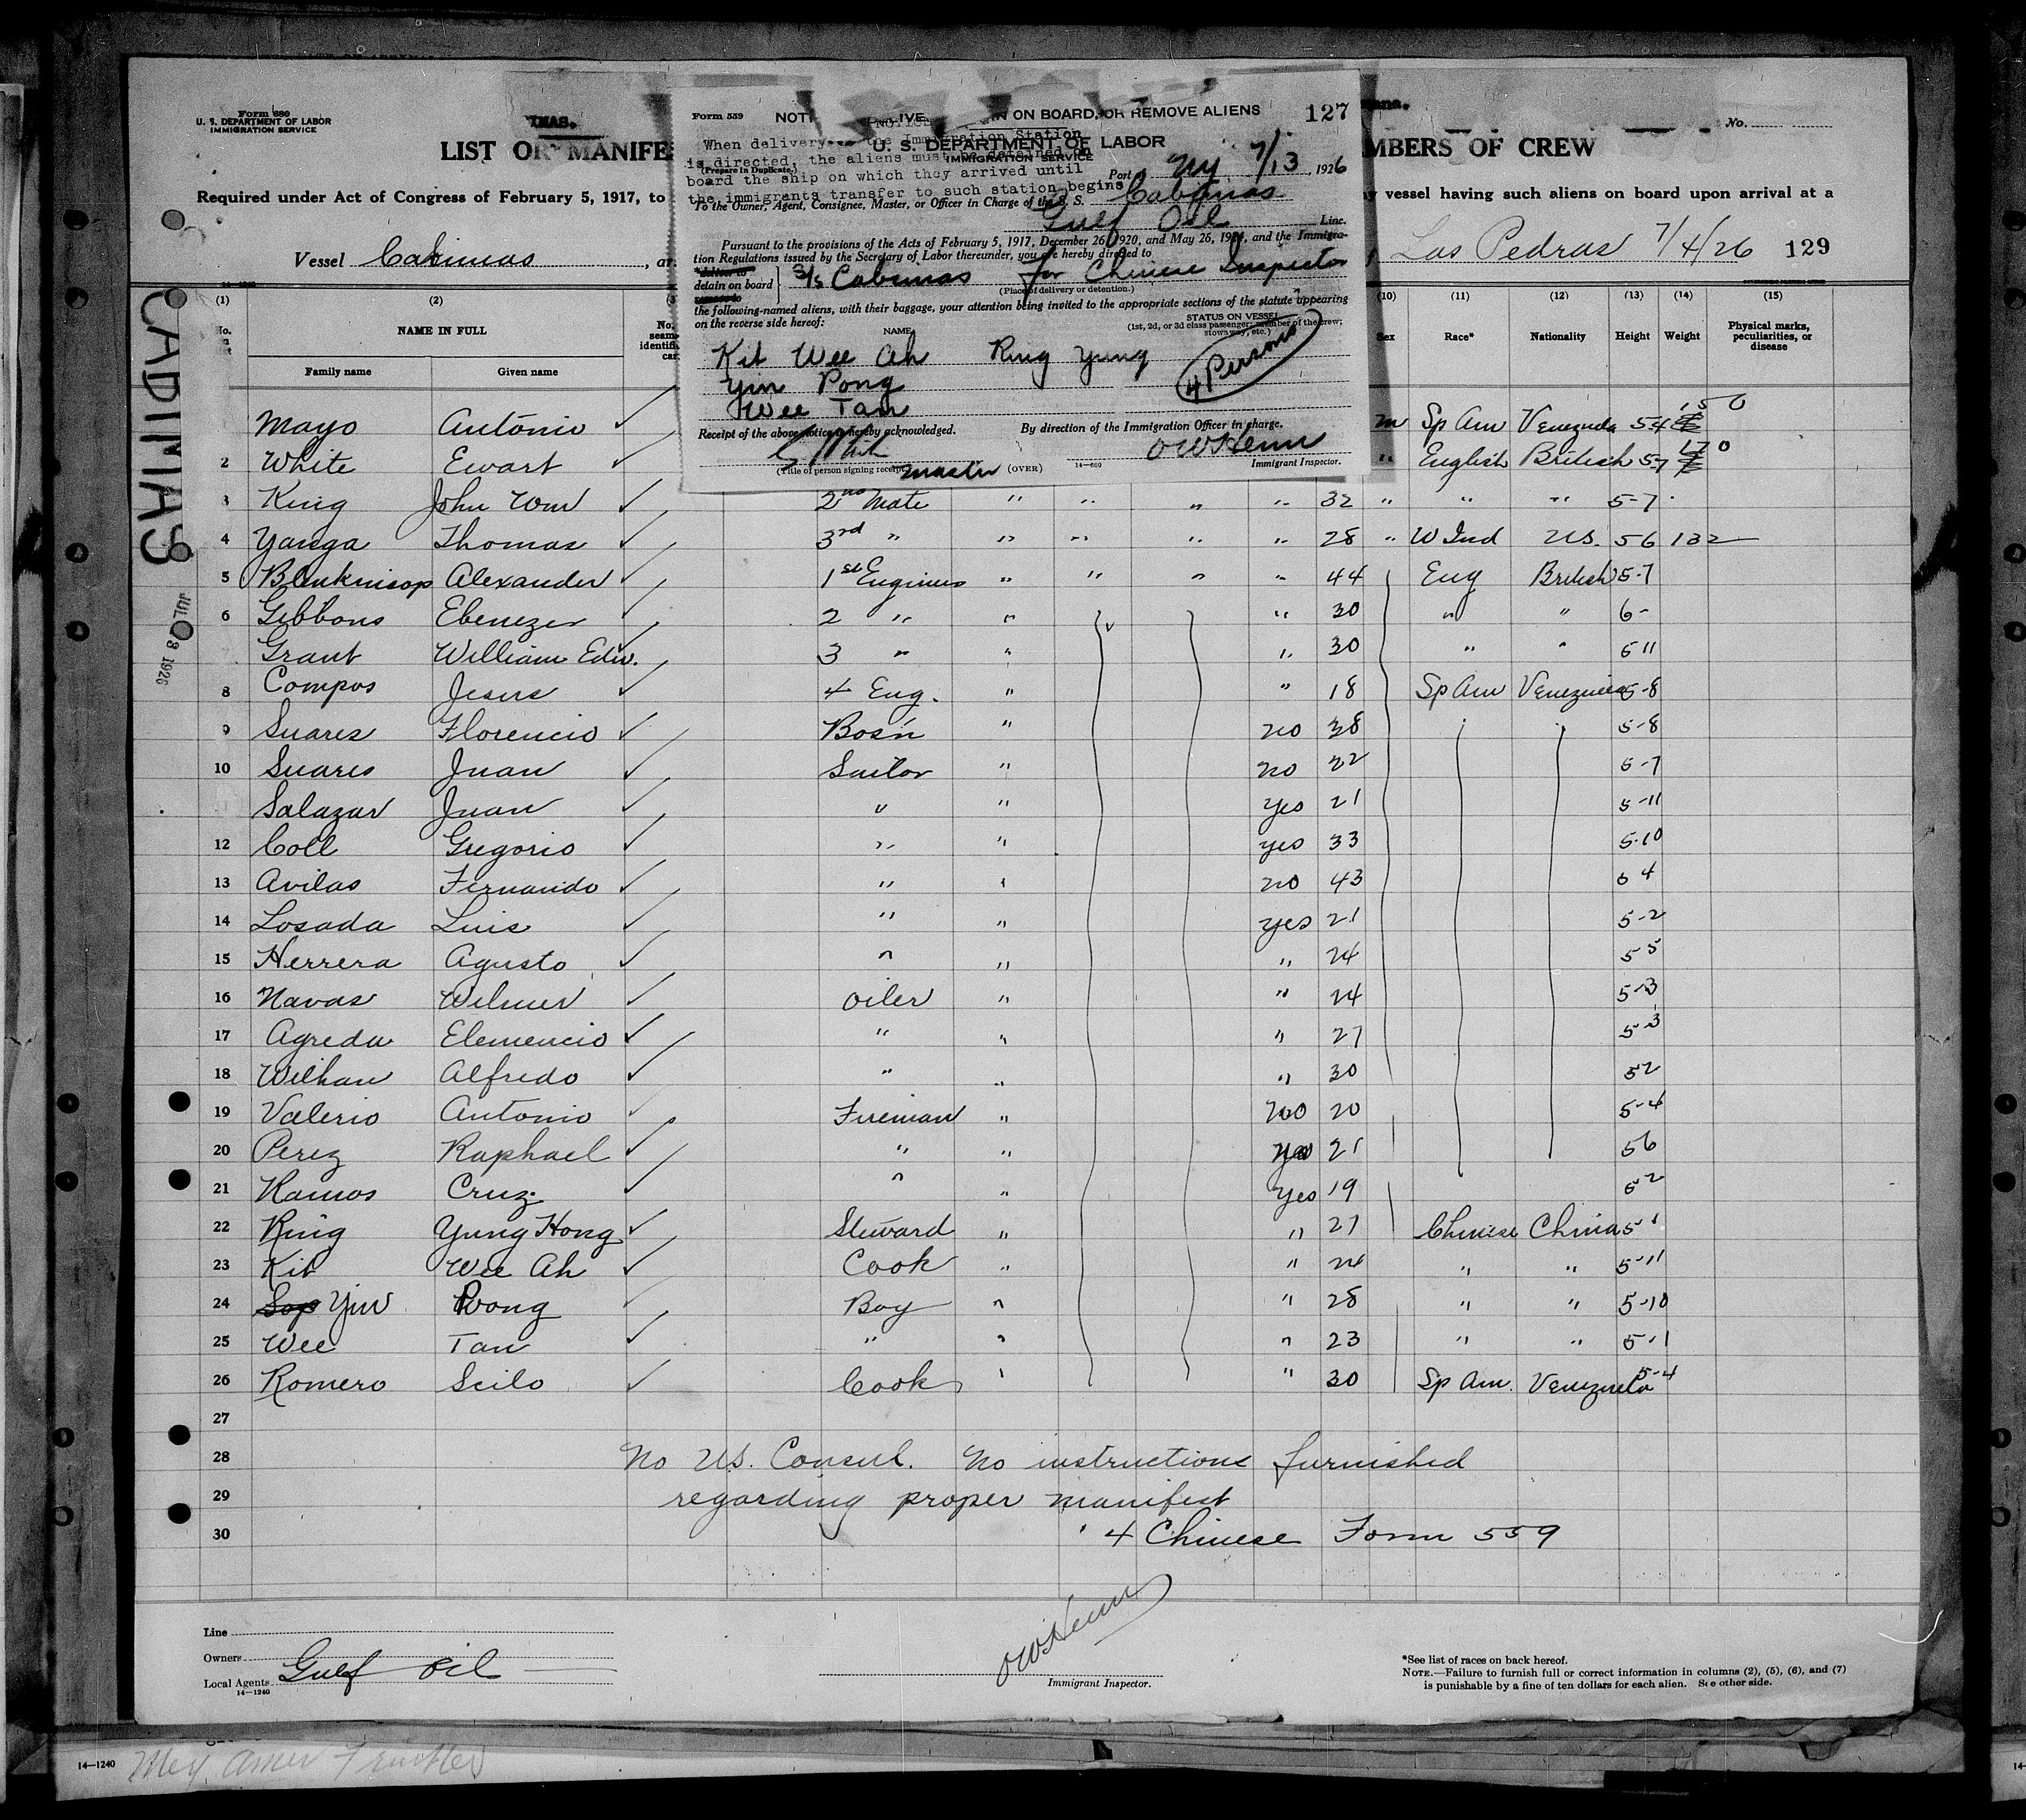 Form 680
U. S. DEPARTMENT OF LABOR
IMMIGRATION SERVICE
LIST OR MANIFE
MBERS OF CREW
No.
Required under Act of Congress of February 5, 1917, to
y vessel having such aliens on board upon arrival at a
Vessel Cabimas, ar
Las Pedras 7/4/26 129
Form 559 NOTI IVE IN ON BOARD, OR REMOVE ALIENS 127
When delivery to the Immigration Station
is directed, the aliens must be detained on
board the ship on which they arrived until
the immigrants transfer to such station begins
U. S. DEPARTMENT OF LABOR
IMMIGRATION SERVICE
(Prepare in Duplicate.)
Port NY 7/13, 1926
To the Owner, Agent, Consignee, Master, or Officer in Charge of the S. S. Cabimas
Gulf Oil Line.
Pursuant to the provisions of the Acts of February 5, 1917, December 26, 1920, and May 26, 1924, and the Immigra-
tion Regulations issued by the Secretary of Labor thereunder, you are hereby directed to
deliver to
detain on board
remove to
S/s Cabimas for Chinese Inspector
(Place of delivery or detention.)
the following-named aliens, with their baggage, your attention being invited to the appropriate sections of the statute appearing
on the reverse side hereof:
NAME
STATUS ON VESSEL
(1st, 2d, or 3d class passenger; member of the crew; stowaway, etc.)
Kit Wee Ah King Yung
Yin Pong
Wee Tan
4 Persons
Receipt of the above notice is hereby acknowledged. By direction of the Immigration Officer in charge.
Master OWHenn
(Title of person signing receipt) (OVER) 14-660 Immigrant Inspector.
CABIMAS
JUL 13 1926
(1) (2) (3 (10) (11) (12) (13) (14) (15)
NAME IN FULL
Family name Given name
No.
seam
identifi
car
Sex Race* Nationality Height Weight Physical marks, peculiarities, or disease
Mayo Antonio m Sp Am Venezuela 5-4 150
2 White Ewart " English British 5-7 170
3 King John Wm 2nd Mate " " " " 32 " " " 5-7
4 Yanga Thomas 3rd " " " " " 28 " W Ind US. 5 6 132
5 Blenkinsop Alexander 1st Engineer " " " " 44 Eng British 5-7
6 Gibbons Ebenezer 2 " " " 30 " " 6-
Grant William Edw. 3 " " " 30 " " 5 11
8 Compos Jesus 4 Eng. " " 18 Sp Am Venezuela 5-8
9 Suares Florencio Bos'n " no 38 5-8
10 Suares Juan Sailor " no 22 5-7
Salazar Juan " " yes 21 5-11
12 Coll Gregorio " " yes 33 5-10
13 Avilas Fernando " " no 43 5 4
14 Losada Luis " " yes 21 5-2
15 Herrera Agusto " " " 24 5 5
16 Navas Wilmer Oiler " " 24 5-3
17 Agreda Elemencio " " " 27 5-3
18 Wilhan Alfredo " " " 30 5 2
19 Valerio Antonio Fireman " no 20 5-4
20 Perez Raphael " " yes 21 5 6
21 Ramos Cruz " " yes 19 5 2
22 King Yung Hong Steward " " 27 Chinese China 5 1
23 Kit Wee Ah Cook " " 24 " " 5-11
24 Sop Yin Pong Boy " " 28 " " 5-10
25 Wee Tan " " " 23 " " 5-1
26 Romero Scilo Cook " " 30 Sp Am. Venezuela 5-4
27
28 No US. Consul. No instructions furnished
29 regarding proper manifest
30 4 Chinese Form 559
Line
Owners
Local Agents Gulf Oil
14-1240
OWHenn
Immigrant Inspector.
*See list of races on back hereof.
NOTE.—Failure to furnish full or correct information in columns (2), (5), (6), and (7)
is punishable by a fine of ten dollars for each alien. See other side.
14-1240